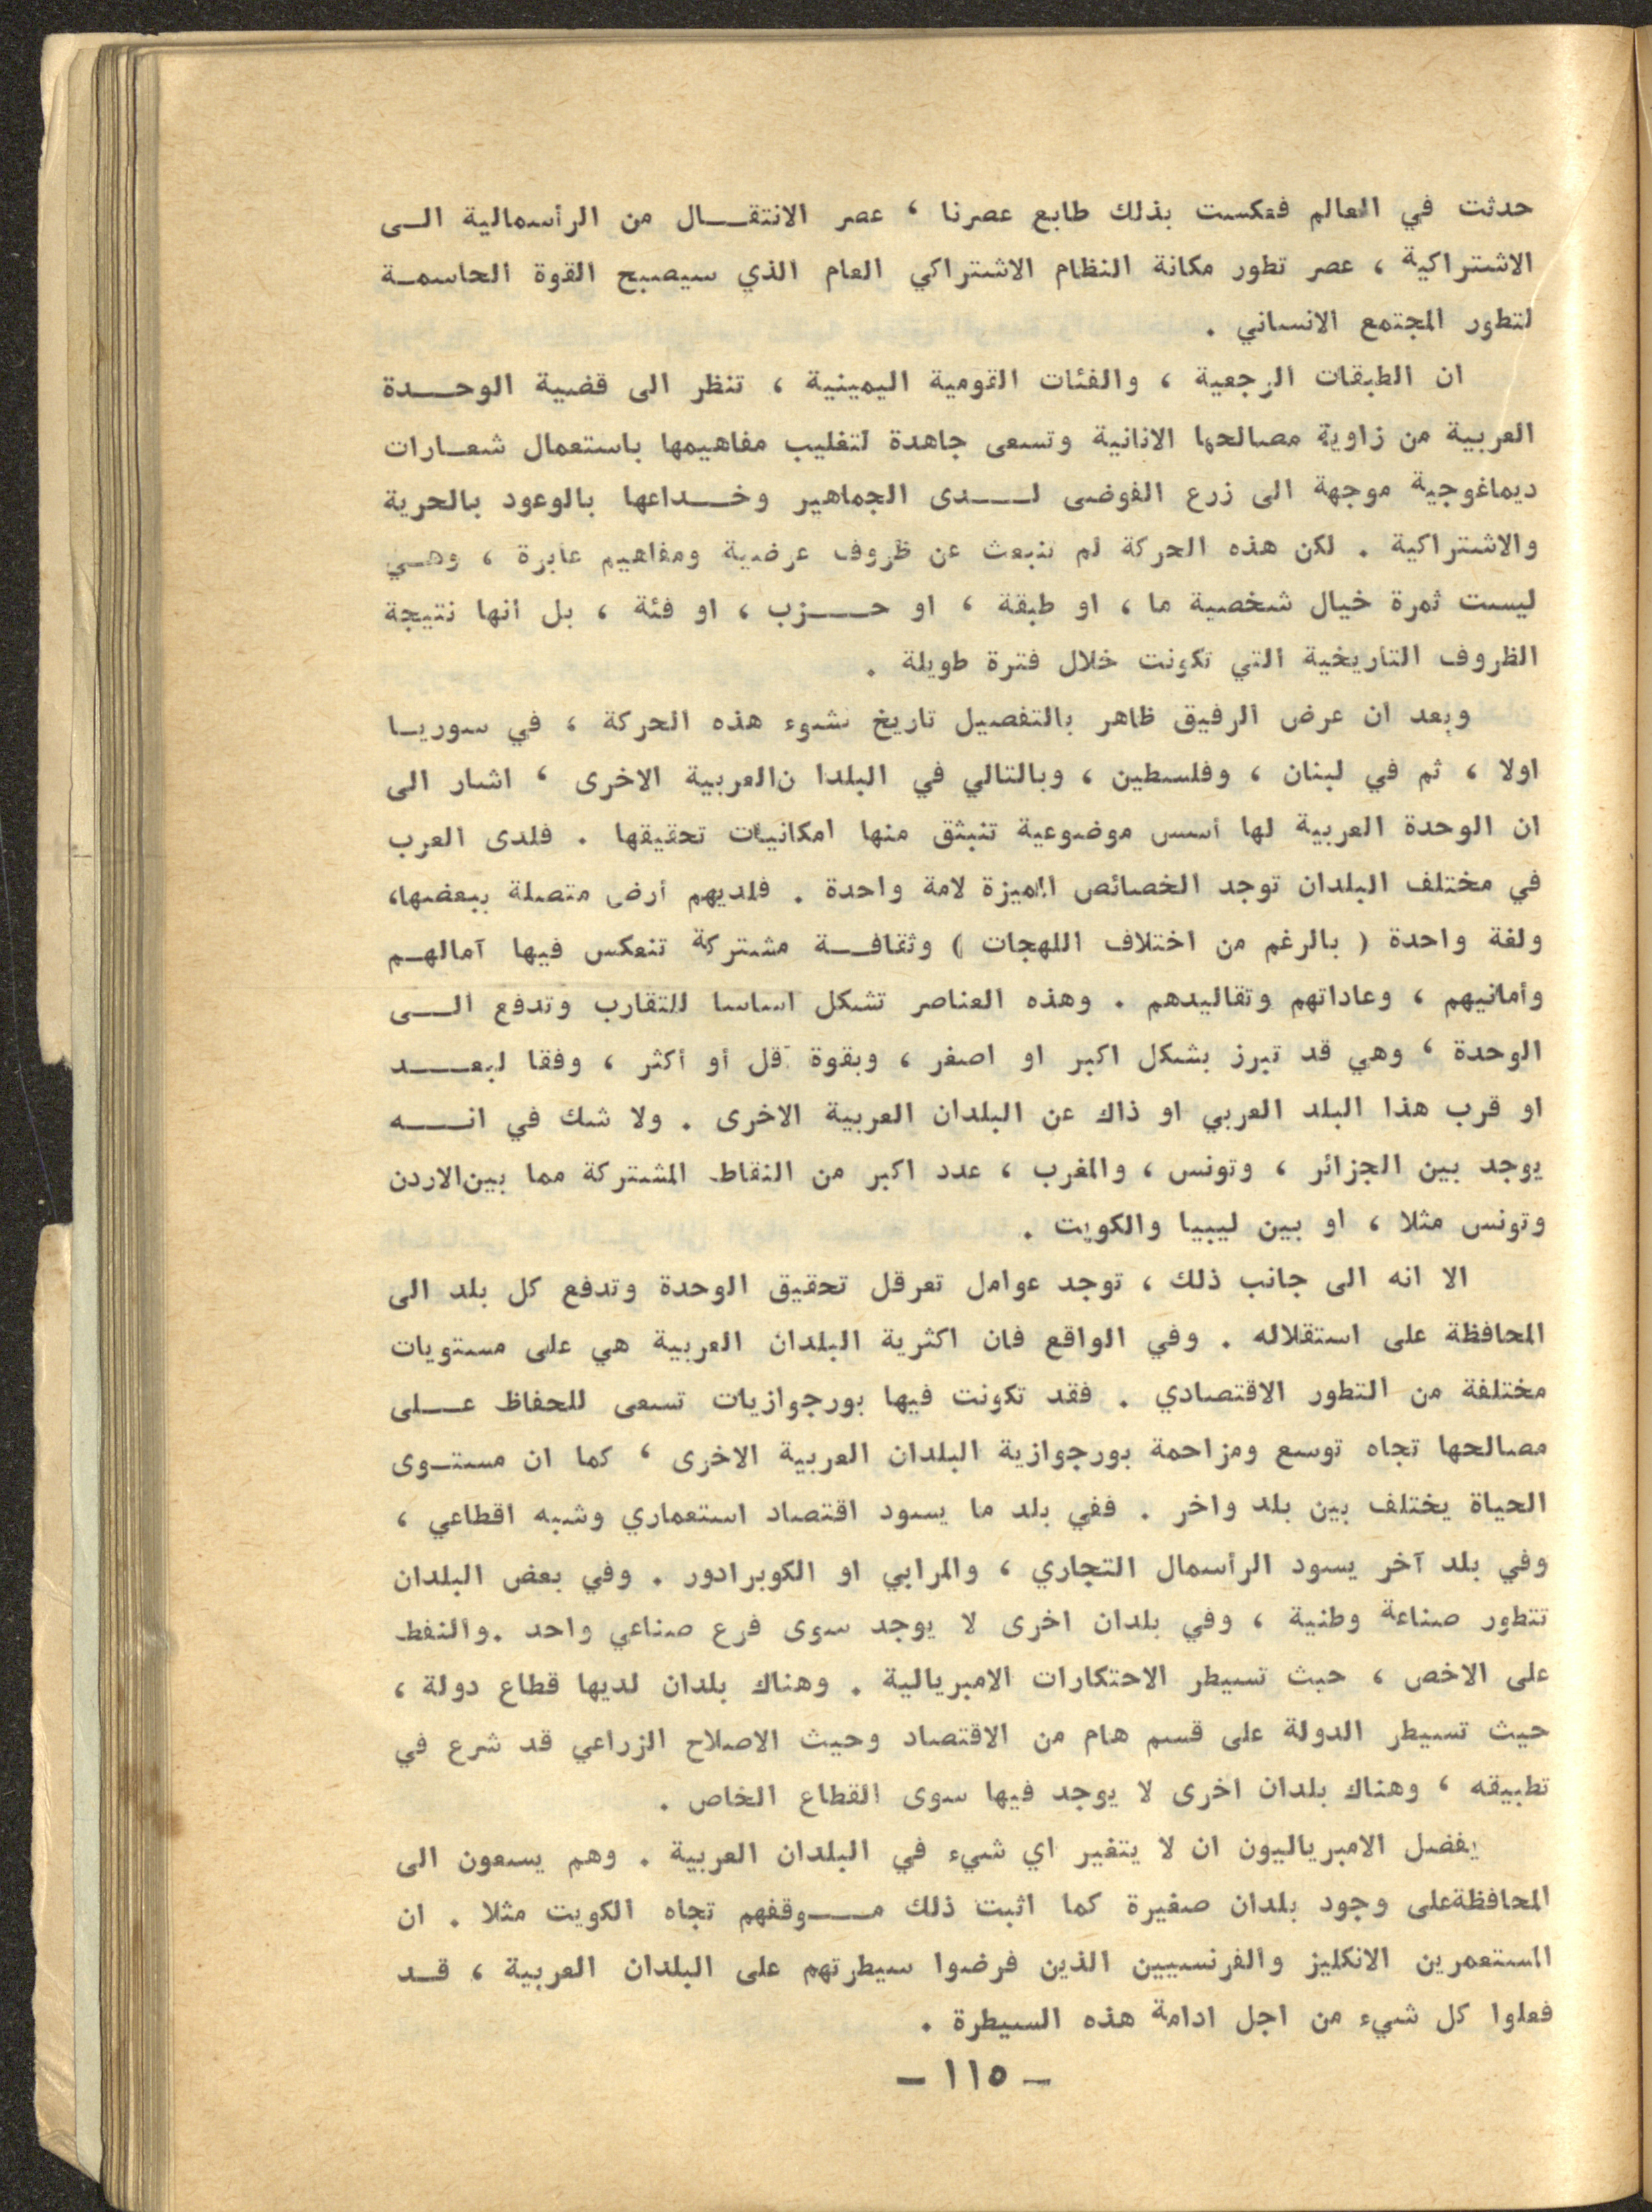 حدثت في العالم فعكست بذلك طابع عصرنا ، عصر الانتقـــال من الرأسمالية الــى
الاشتراكية ، عصر تطور مكانة النظام الاشتراكي العام الذي سيصبح القوة الحاسمـة
لتطور المجتمع الانساني .
ان الطبقات الرجعية ، والفئات القومية اليمينية ، تنظر الى قضية الوحـــدة
العربية من زاوية مصالحها الانانية وتسعى جاهدة لتغليب مفاهيمها باستعمال شعـارات
ديماغوجية موجهة الى زرع الفوضى لــــدى الجماهير وخـــداعها بالوعود بالحرية
والاشتراكية . لكن هذه الحركة لم تنبعث عن ظروف عرضية ومفاهيم عابرة ، وهـي
ليست ثمرة خيال شخصية ما ، او طبقة ، او حـــزب ، او فئة ، بل أنها نتيجة
الظروف التاريخية التي تكونت خلال فترة طويلة .
وبعد ان عرض الرفيق ظاهر بالتفصيل تاريخ نشوء هذه الحركة ، في سوريـا
اولا ، ثم في لبنان ، وفلسطين ، وبالتالي في البلدا ن العربية الاخرى ، اشار الى
ان الوحدة العربية لها أسس موضوعية تنبثق منها امكانيات تحقيقها . فلدى العرب
في مختلف البلدان توجد الخصائص المميزة لامة واحدة . فلديهم أرض متصلة ببعضها،
ولغة واحدة ( بالرغم من اختلاف اللهجات ) وثقافـــة مشتركة تنعكس فيها آمالهـم
وأمانيهم ، وعاداتهم وتقاليدهم . وهذه العناصر تشكل اساسا للتقارب وتدفع الـــى
الوحدة ، وهي قد تبرز بشكل اكبر او اصغر ، وبقوة أقل أو أكثر ، وفقا لبعـــــد
او قرب هذا البلد العربي او ذاك عن البلدان العربية الاخرى . ولا شك في انــــه
يوجد بين الجزائر ، وتونس ، والمغرب ، عدد اكبر من النقاط المشتركة مما بين الاردن
وتونس مثلا ، او بين ليبيا والكويت .
الا انه الى جانب ذلك ، توجد عوامل تعرقل تحقيق الوحدة وتدفع كل بلد الى
المحافظة على استقلاله . وفي الواقع فان اكثرية البلدان العربية هي على مستويات
مختلفة من التطور الاقتصادي . فقد تكونت فيها بورجوازيات تسعى للحفاظ عـــلى
مصالحها تجاه توسع ومزاحمة بورجوازية البلدان العربية الاخرى ، كما ان مستـوى
الحياة يختلف بين بلد واخر . ففي بلد ما يسود اقتصاد استعماري وشبه اقطاعي ،
وفي بلد آخر يسود الرأسمال التجاري ، والمرابي او الكوبرادور . وفي بعض البلدان
تتطور صناعة وطنية ، وفي بلدان اخرى لا يوجد سوى فرع صناعي واحد .والنفط
على الاخص ، حبث تسيطر الاحتكارات الامبريالية . وهناك بلدان لديها قطاع دولة ،
حيث تسيطر الدولة على قسم هام من الاقتصاد وحيث الاصلاح الزراعي قد شرع في
تطبيقه ، وهناك بلدان اخرى لا يوجد فيها سوى القطاع الخاص .
يفضل الامبرياليون ان لا يتغير اي شيء في البلدان العربية . وهم يسعون الى
المحافظةعلى وجود بلدان صغيرة كما اثبت ذلك مــــوقفهم تجاه الكويت مثلا . ان
المستعمرين الانكليز والفرنسيين الذين فرضوا سيطرتهم على البلدان العربية ، قـد
فعلوا كل شيء من اجل ادامة هذه السيطرة .
– ١١٥ –